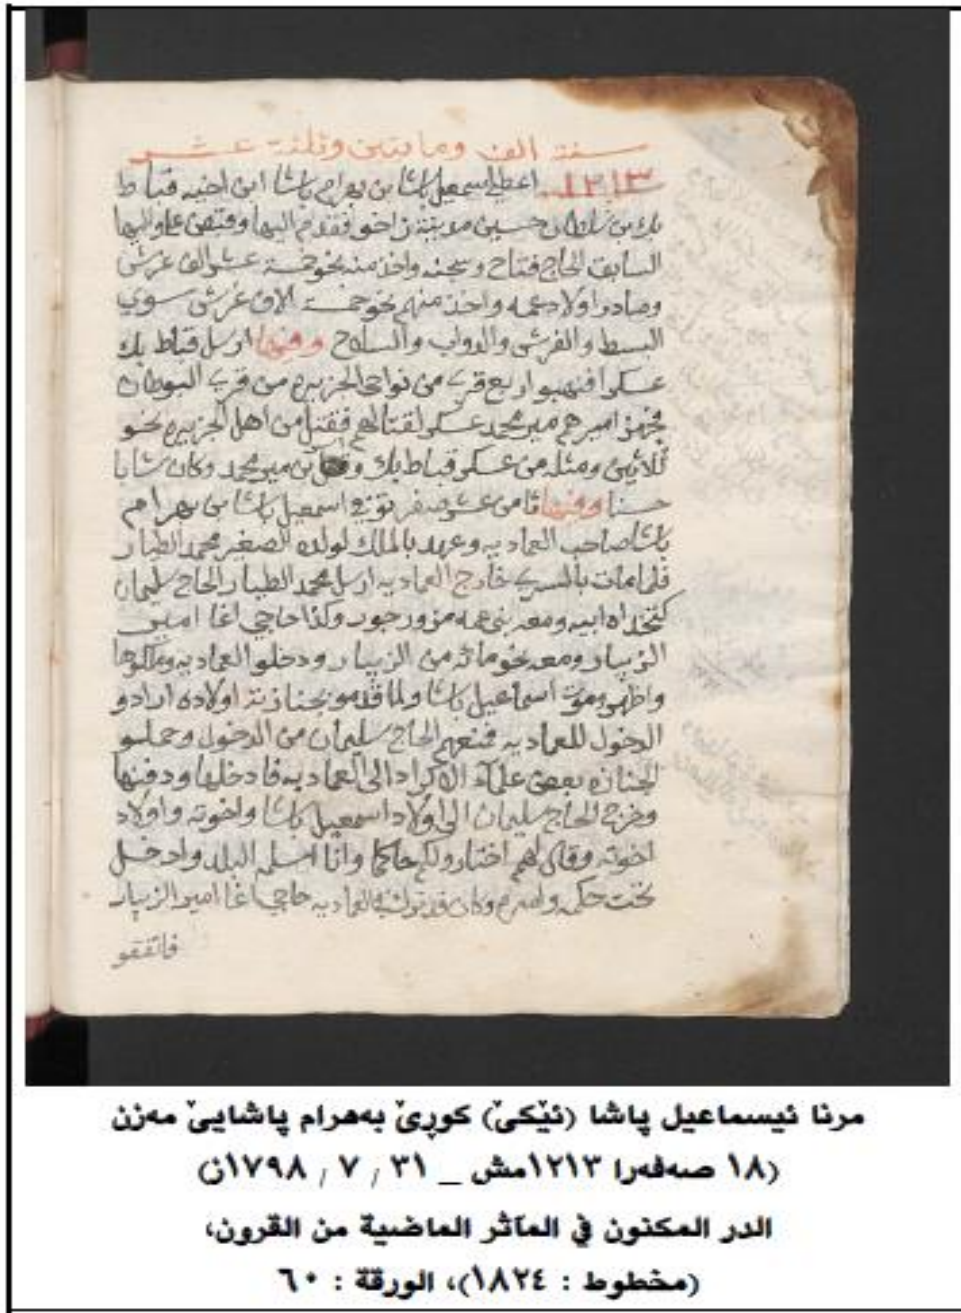 سنة الف ومايتين وثلثة عشر
١٢١٣ اعطى اسمعيل باشا بن بهرام باشا ابن اخيه قباط
بك بن سلطان حسين مدينة زاخو فقدم اليها وقبض على واليها
السابق الحاج فتاح وسجنه واخذ منه نحو خمسة عشر الف غرش
وصادر اولاد عمه واخذ منهم نحو خمسة الاف غرش سوى
البسط والفرش والدواب والسلاح وفيها ارسل قباط بك
عسكرا فنهبوا اربع قرى من نواحي الجزيرة من قرى البوطان
فجهز اميرهم مير محمد عسكر لقتالهم فقتل من اهل الجزيرة نحو
ثلاثين ومثله من عسكر قباط بك بن مير محمد وكان شابا
حسنا وفيها ثامن عشر صفر توفي اسمعيل باشا بن بهرام
باشا صاحب العمادية وعهد بالملك لولده الصغير محمد الطيار
فلما مات خارج العمادية ارسل محمد الطيار الحاج سليمان
كتخداه ابيه ومعه بني عمه مزورجور وكذا حاجي اغا امير
الزيبار ومعه نحو مائة من الزيبار ودخلو العمادية وملكوها
واظهرو موت اسماعيل باشا ولما قدمو بجنازته اولاده ارادو
الدخول للعمادية فمنعهم الحاج سليمان من الدخول وحملو
الجنازة بعض علماء الاكراد الى العمادية فادخلها ودفنها
وخرج الحاج سليمان الى اولاد اسمعيل باشا واخوته واولاد
اخوته وقال لهم اختارو لكم حاكما وانا اسلمه البلد وادخل
تحت حكمه وامره وكان قد ترك في العمادية حاجي اغا امير الزيبار
فاتفقو
مرنا ئیسماعیل پاشا (ئێکێ) کوڕێ بەهرام پاشایێ مەزن
(١٨ صەفەرا ١٢١٣مش _ ٣١ / ٧ / ١٧٩٨ن)
الدر المكنون في المآثر الماضية من القرون،
(مخطوط : ١٨٢٤)، الورقة : ٦٠